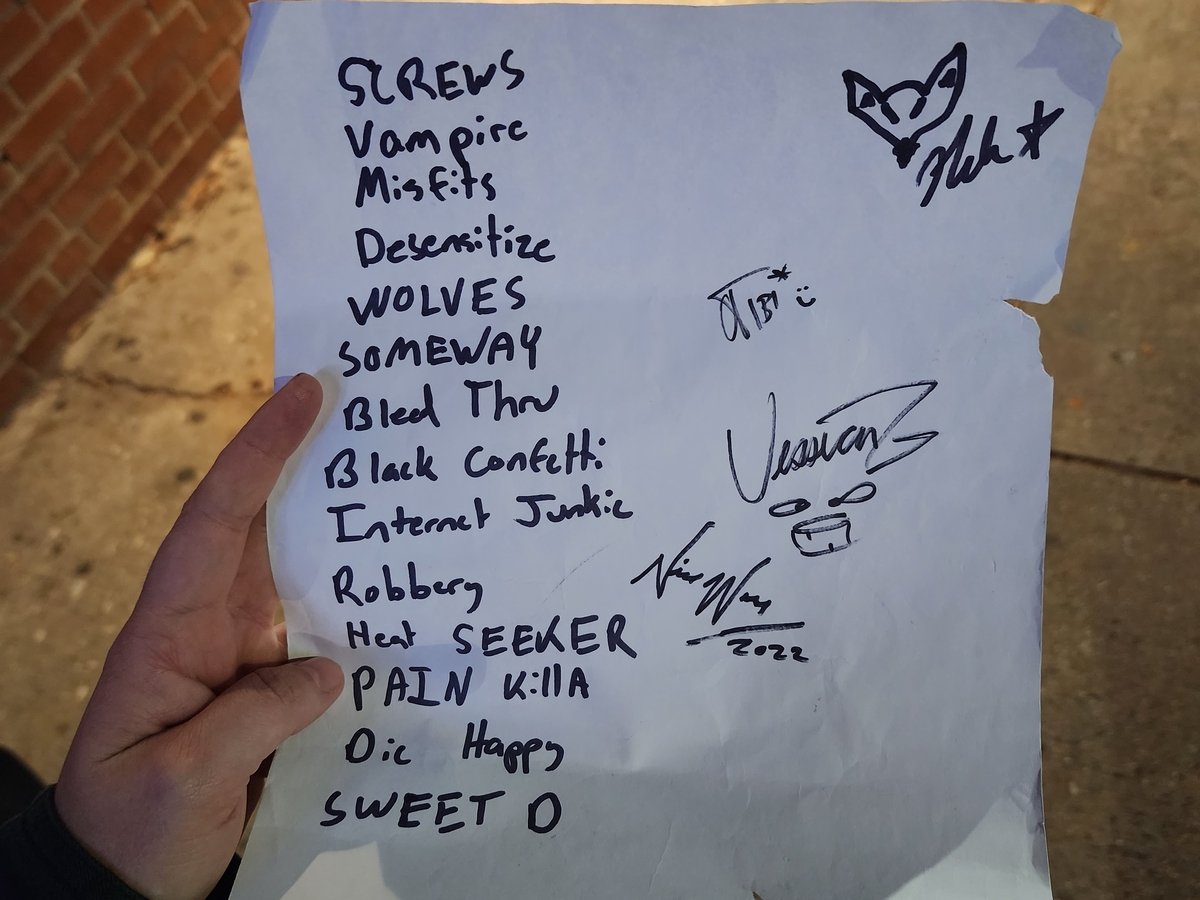 SCREWS
Vampire
Misfits
Desensitize
WOLVES
SOMEWAY
Bleed Thru
Black Confetti
Internet Junkie
Robbery
Heat SEEKER
PAIN KillA
Die Happy
SWEET D
2022